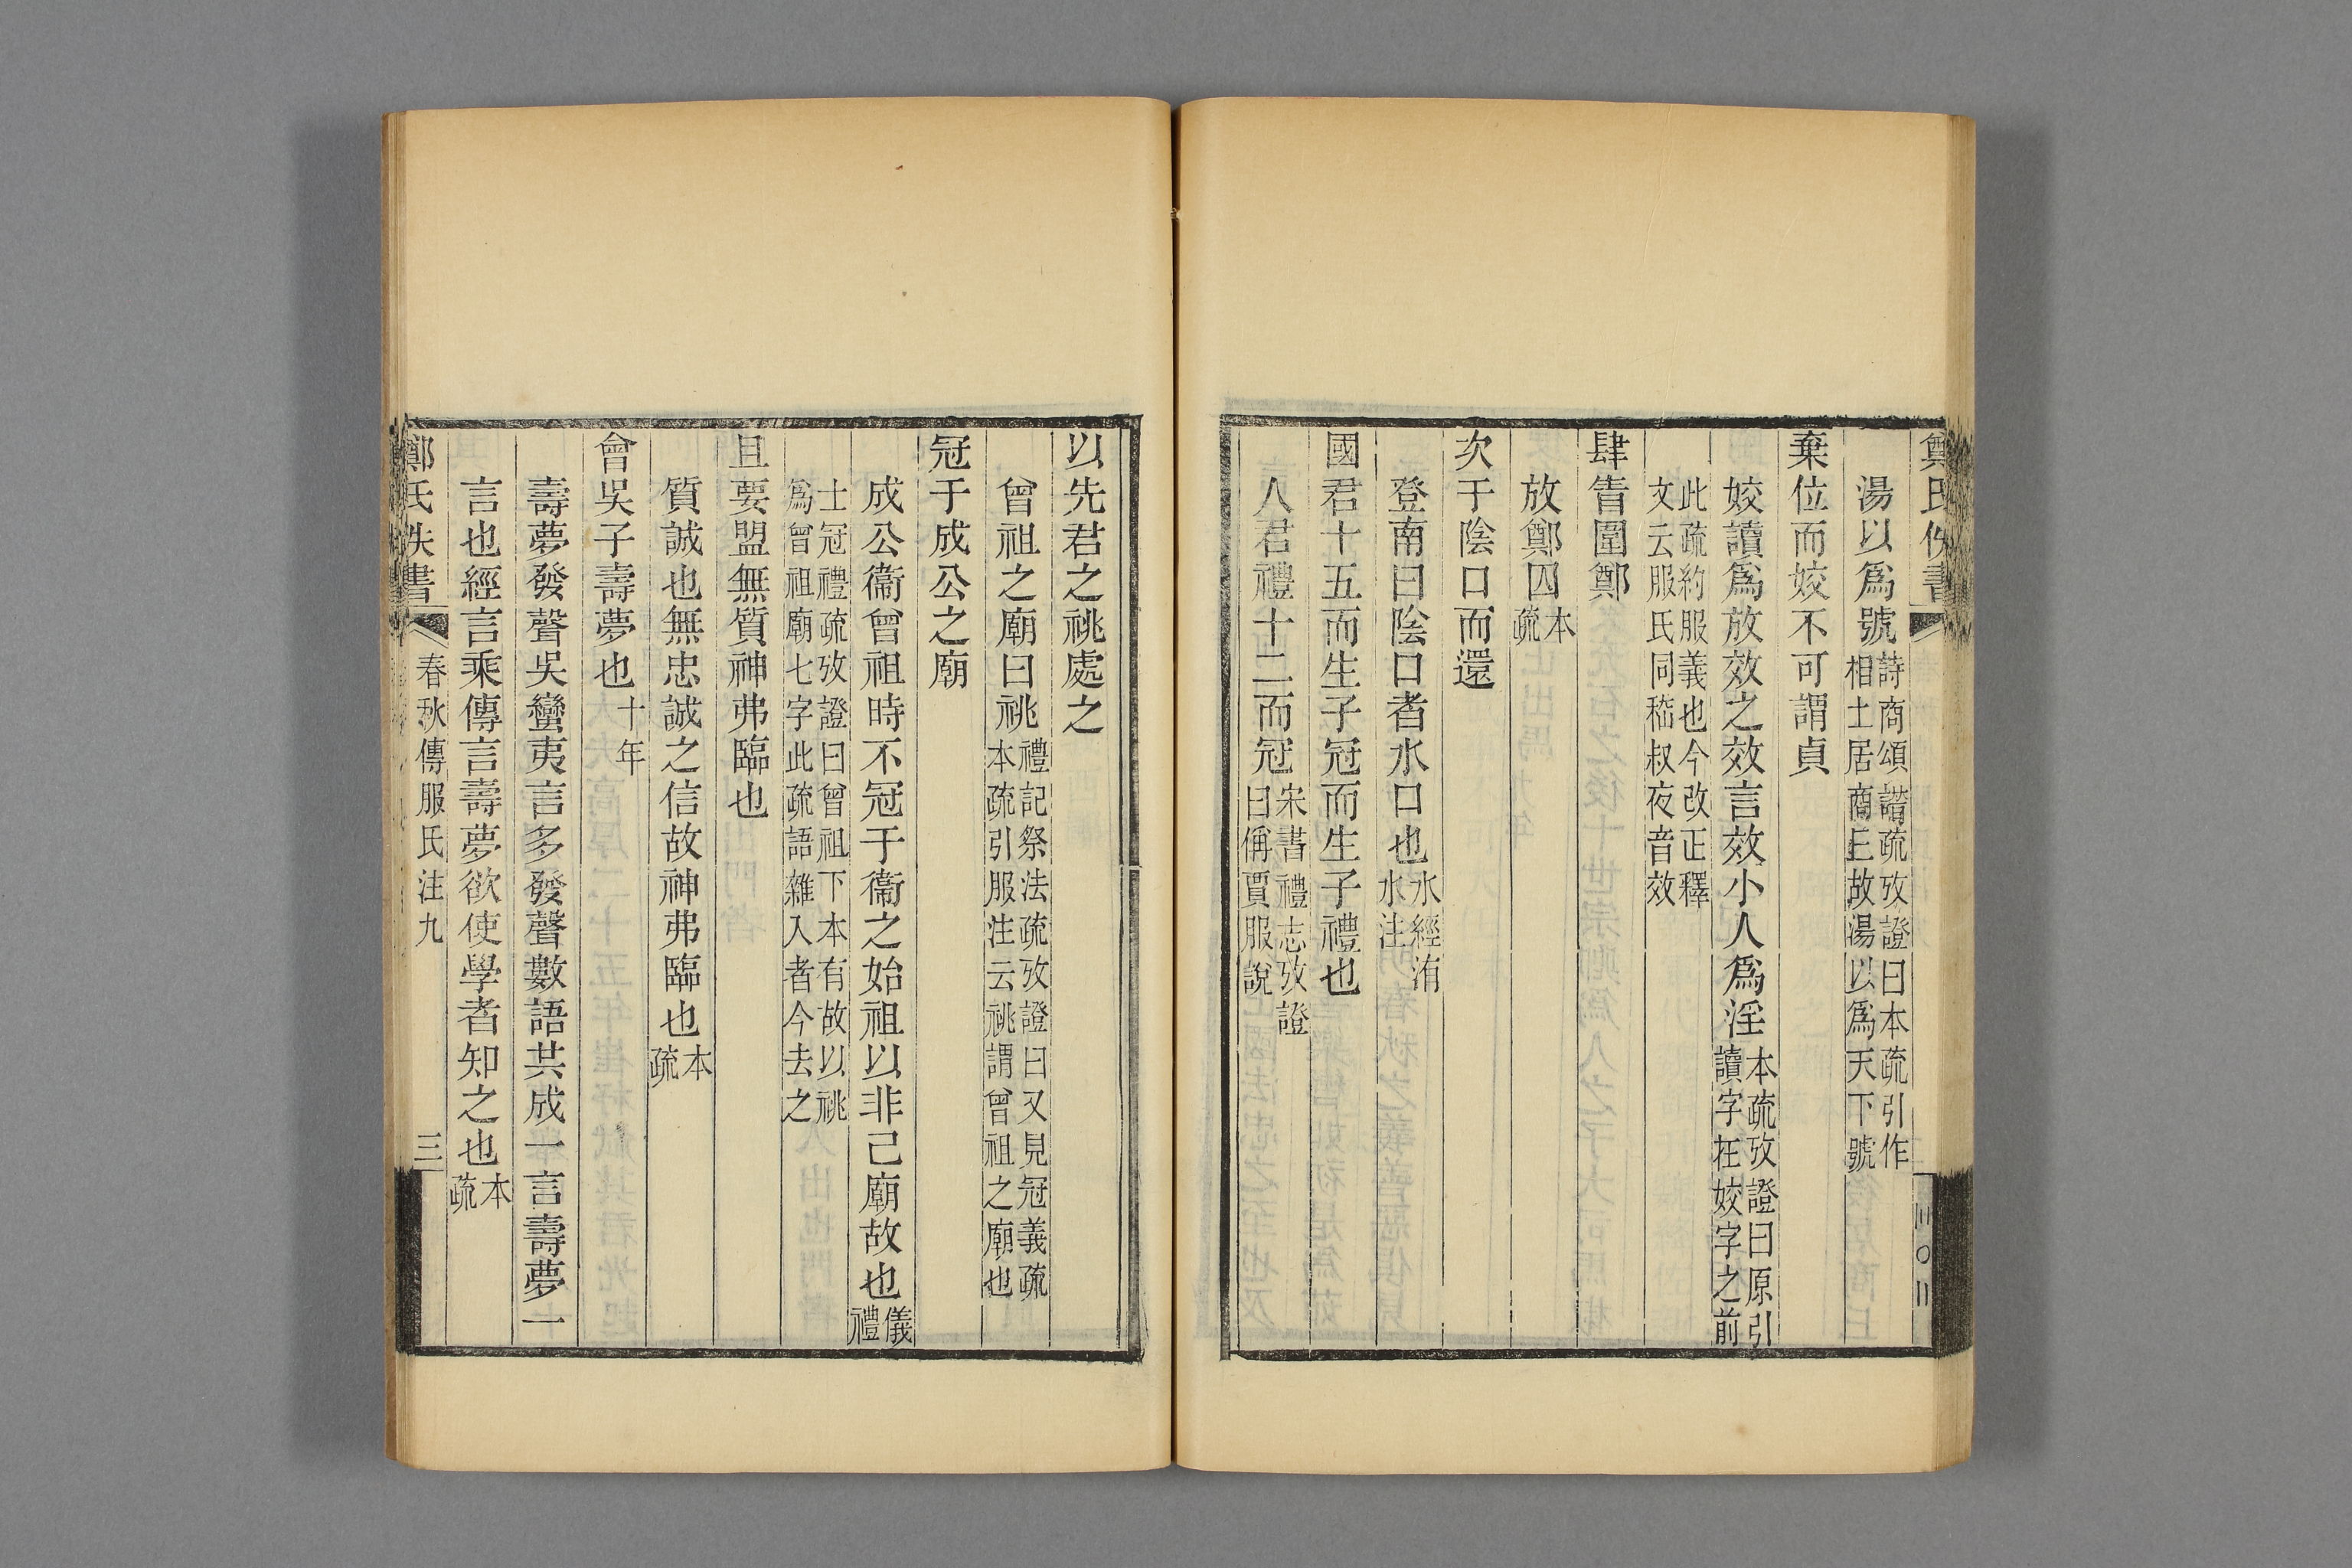 鄭氏佚書
湯以爲號詩商頌譜疏攷證曰本疏引作相土居商丘故湯以爲天下號
棄位而姣不可謂貞
姣讀爲放效之效言效小人爲淫本疏攷證曰原引讀字在姣字之前
此疏約服義也今改正釋文云服氏同嵇叔夜音效
肆眚圍鄭
放鄭囚本疏
次于陰口而還
登南曰陰口者水口也水經洧水注
國君十五而生子冠而生子禮也
人君禮十二而冠宋書禮志攷證曰偁賈服說
以先君之祧處之
曾祖之廟曰祧禮記祭法疏攷證曰又見冠義疏本疏引服注云祧謂曾祖之廟也
冠于成公之廟
成公衞曾祖時不冠于衞之始祖以非己廟故也儀禮
士冠禮疏攷證曰曾祖下本有故以祧爲曾祖廟七字此疏語雜入者今去之
且要盟無質神弗臨也
質誠也無忠誠之信故神弗臨也本疏
會吳子壽夢也十年
壽夢發聲吳蠻夷言多發聲數語共成一言壽夢一
言也經言乘傳言壽夢欲使學者知之也本疏
鄭氏佚書 春秋傳服氏注九 三